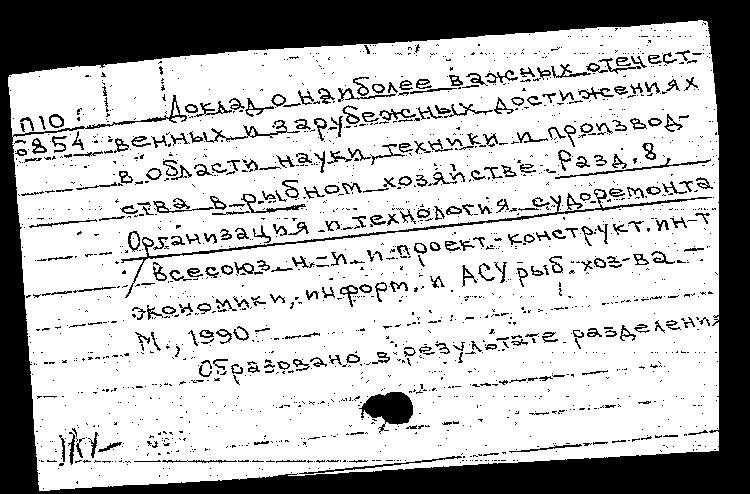 Доклад о наиболее важных отечест-
П10
6854 венных и зарубежных достижениях
в области науки, техники и производ-
ства в рыбном хозяйстве. Разд. 8,
Организация и технология судоремонта
Всесоюз. н.-и. и проект.-конструкт. ин-т
экономики, информ. и АСУ рыб. хоз-ва. -
М., 1990. -
Образовано в результате разделения